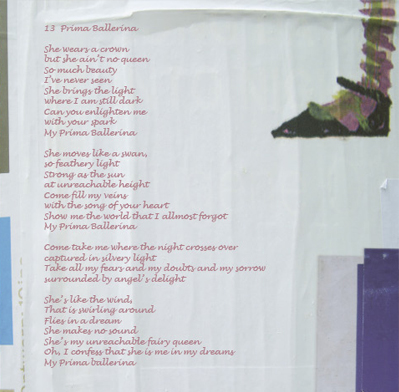 13 Prima Ballerina
She wears a crown
but she ain't no queen
So much beauty
I've never seen
She brings the light
where I am still dark
Can you enlighten me
with your spark
My Prima Ballerina
She moves like a swan,
so feathery light
Strong as the sun
at unreachable height
Come fill my veins
with the song of your heart
Show me the world that I allmost forgot
My Prima Ballerina
Come take me where the night crosses over
captured in silvery light
Take all my fears and my doubts and my sorrow
surrounded by angel's delight
She's like the wind,
That is swirling around
Flies in a dream
She makes no sound
She's my unreachable fairy queen
Oh, I confess that she is me in my dreams
My Prima ballerina